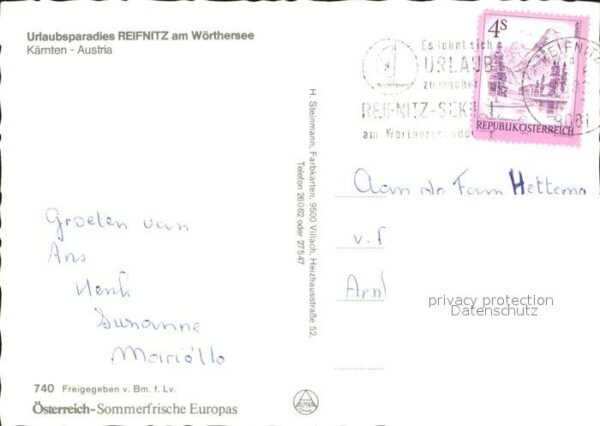 Urlaubsparadies REIFNITZ am Wörthersee
Kärnten - Austria
Groeten van
Ans
Henk
Suzanne
Mariëlle
740 Freigegeben v. Bm. f. Lv.
Österreich-Sommerfrische Europas
H. Steinmann, Farbkarten, 9500 Villach, Heizhausstraße 52.
Telefon 26062 oder 27547
Es lohnt sich
URLAUB
zu machen
REIFNITZ-SEK
am Wörthersee
4S
REPUBLIK ÖSTERREICH
REIFNITZ
9081
Aan de Fam Hettema
v.
Arn
privacy protection
Datenschutz